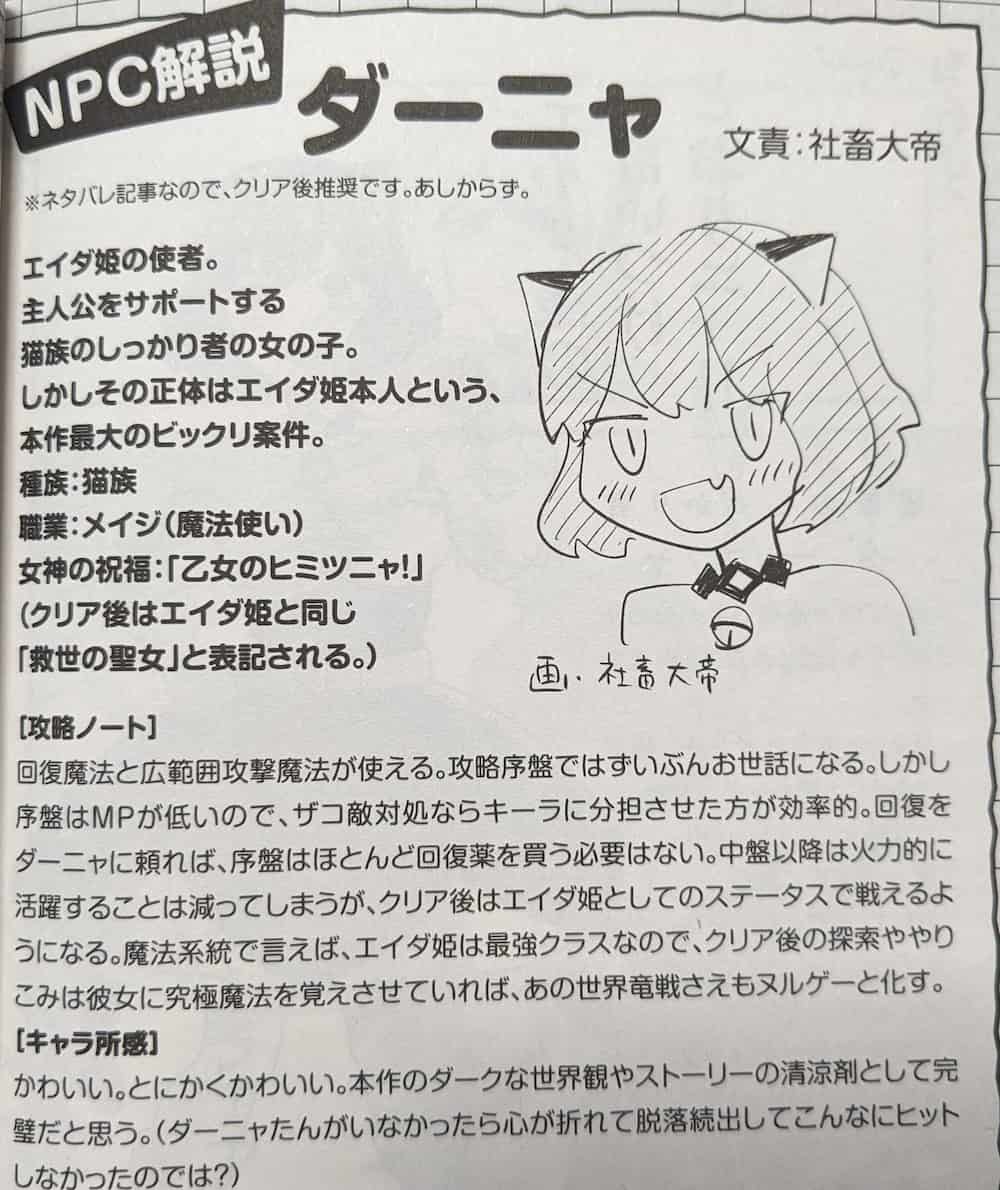 NPC解説
ダーニャ
文責：社畜大帝
※ネタバレ記事なので、クリア後推奨です。あしからず。
エイダ姫の使者。
主人公をサポートする
猫族のしっかり者の女の子。
しかしその正体はエイダ姫本人という、
本作最大のビックリ案件。
種族：猫族
職業：メイジ（魔法使い）
女神の祝福：「乙女のヒミツニャ！」
（クリア後はエイダ姫と同じ
「救世の聖女」と表記される。）
画：社畜大帝
［攻略ノート］
回復魔法と広範囲攻撃魔法が使える。攻略序盤ではずいぶんお世話になる。しかし
序盤はMPが低いので、ザコ敵対処ならキーラに分担させた方が効率的。回復を
ダーニャに頼れば、序盤はほとんど回復薬を買う必要はない。中盤以降は火力的に
活躍することは減ってしまうが、クリア後はエイダ姫としてのステータスで戦えるよ
うになる。魔法系統で言えば、エイダ姫は最強クラスなので、クリア後の探索ややり
こみは彼女に究極魔法を覚えさせていれば、あの世界竜戦さえもヌルゲーと化す。
［キャラ所感］
かわいい。とにかくかわいい。本作のダークな世界観やストーリーの清涼剤として完
璧だと思う。（ダーニャたんがいなかったら心が折れて脱落続出してこんなにヒット
しなかったのでは？）